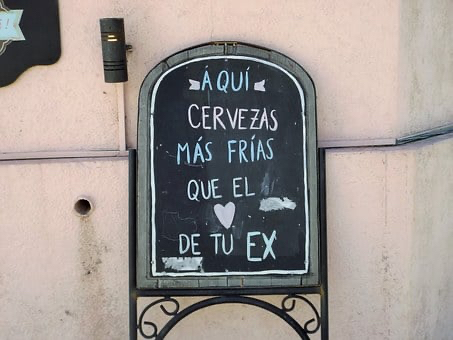 ÁQUÍ
CERVEZAS
MÁS FRÍAS
QUE EL
♥
DE TU EX